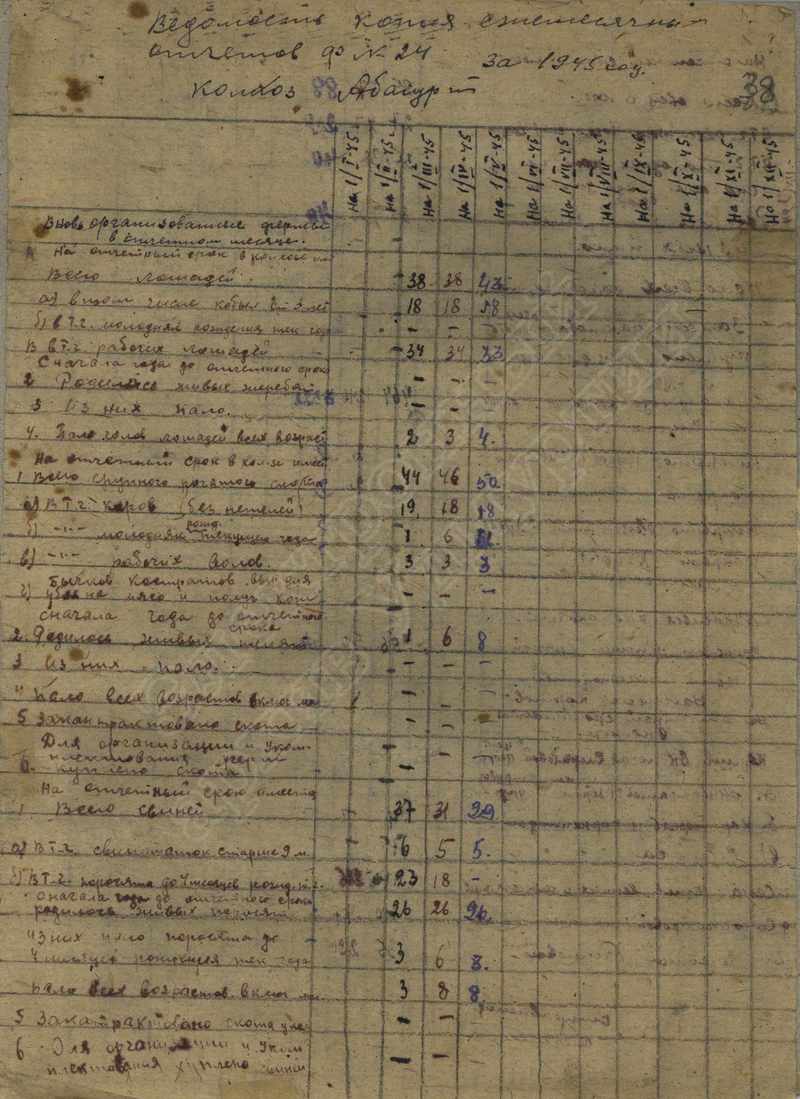 Ведомость копия ежемесячных
отчетов ф № 24 за 1945 год.
колхоз Абагурт
38
На 1/I-45 На 1/II-45 На 1/III-45 На 1/IV-45 На 1/V-45 На 1/VI-45 На 1/VII-45 На 1/VIII-45 На 1/IX-45 На 1/X-45 На 1/XI-45 На 1/XII-45
Вновь организованные фермы
в отчетном месяце. -
На отчетный срок в колхозе
Всего лошадей 38 38 43
а) в том числе кобыл 3 лет 18 18 18
б) в т.ч. молодняк рождения тек года - - -
В в т.ч. рабочих лошадей 34 34 33
С начала года до отчетного срока
2 Родилось живых жеребят - - -
3 Из них пало. - -
4. Пало голов лошадей всех возраст 2 3 4.
На отчетный срок в кол-зе имеет
1 Всего крупного рогатого скота 44 46 50
а) В т.ч. коров (без нетелей) 19 18 18
б) -"- молодняк рожд. текущего года 1 6
в) -"- рабочих волов. 3 3 3
Бычков кастратов
г) на мясо и - - -
сначала года до отчетного
срока
2. Родилось живых телят 1 6 8
3 Из них пало. - - -
4 Пало всех возрастов включ - -
5 Законтрактовано скота - -
Для организации и уком-
плектования ферм
6. куплено скота - - -
На отчетный срок имеется
1 Всего свиней 37 31 29
а) В т.ч. свиноматок старше 9 м. 6 5 5.
б) В т.ч. поросята до 4 месяцев 23 18 -
сначала года до отчетного срока
родилось живых поросят 26 26 26.
из них пало поросята до
4 месяцев рождения тек года 3 6 8.
Пало всех возрастов включ 3 8 8.
5 Закатрактовано скота - -
6 Для организации и уком
плектования куплено свиней - -